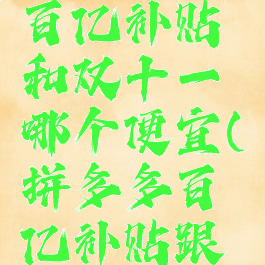 百亿补贴
和双十一
哪个便宜(
拼多多百
亿补贴跟